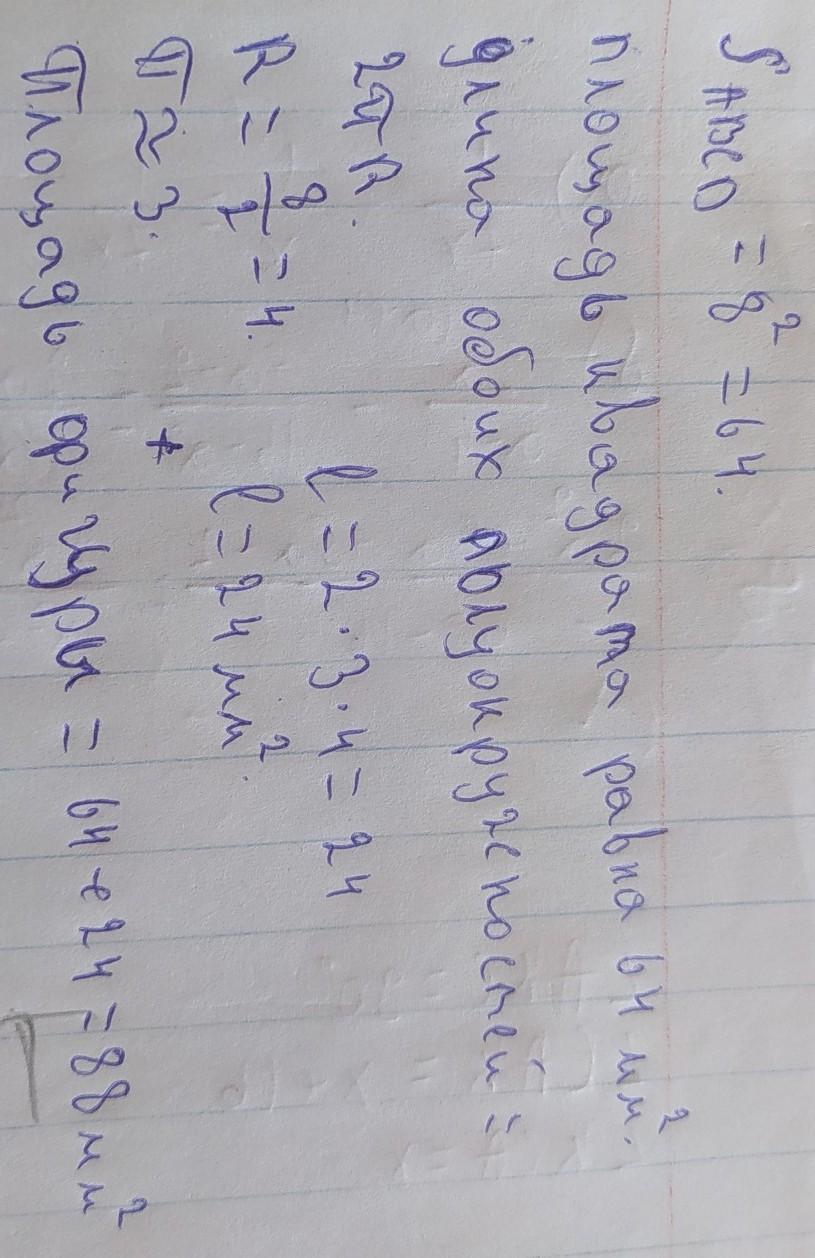 S ABCD = 8² = 64.
площадь квадрата равна 64 мм².
длина обоих полуокружностей =
2πR.
R = 8/2 = 4. l = 2·3·4 = 24
π ≈ 3. l = 24 мм².
Площадь фигуры = 64+24 = 88 мм²